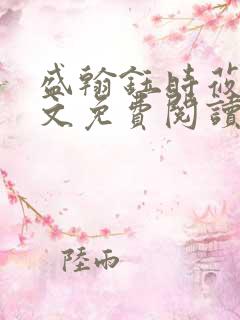 盛翰鈺時莜
文免費閱讀
陸雨